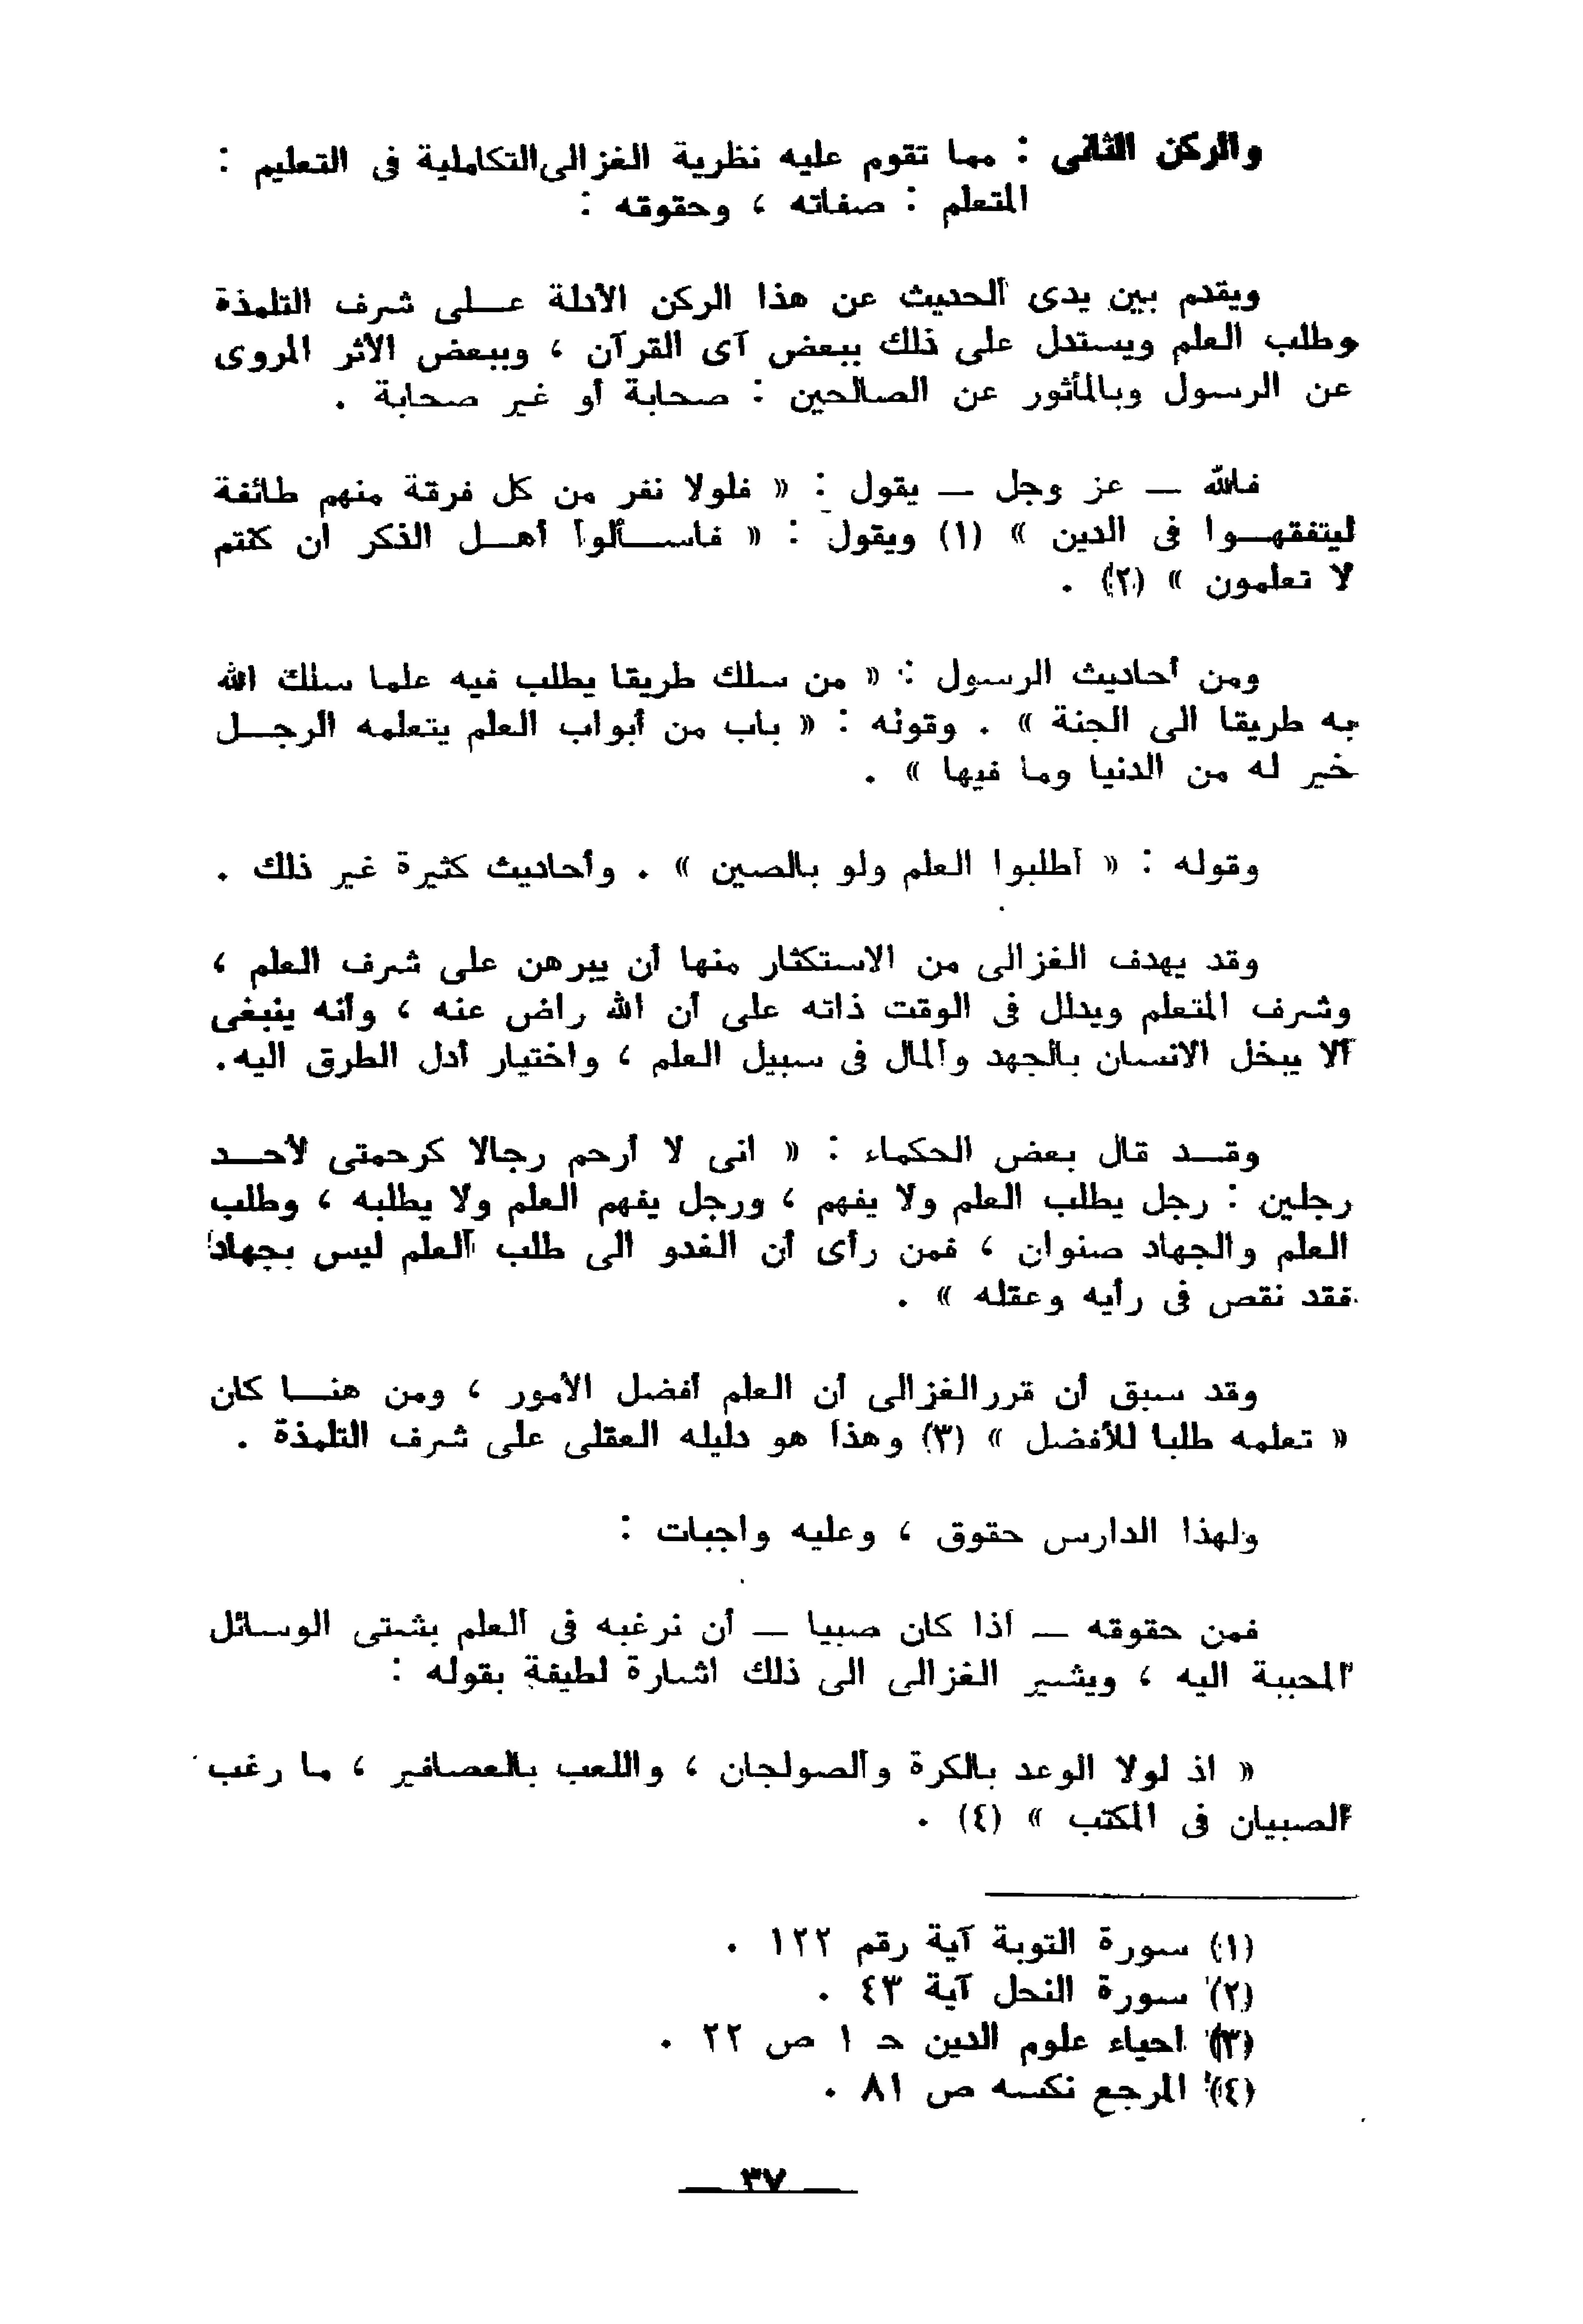 والركن الثانى : مما تقوم عليه نظرية الغزالى التكاملية فى التعليم :
المتعلم : صفاته ، وحقوقه :
ويقدم بين يدى الحديث عن هذا الركن الأدلة عــلى شرف التلمذة
وطلب العلم ويستدل على ذلك ببعض آى القرآن ، وببعض الأثر المروى
عن الرسول وبالمأثور عن الصالحين : صحابة أو غير صحابة .
فالله — عز وجل — يقول : « فلولا نفر من كل فرقة منهم طائفة
ليتفقهــوا فى الدين » (١) ويقول : « فاســألوا أهــل الذكر ان كنتم
لا تعلمون » (٢) .
ومن أحاديث الرسول : « من سلك طريقا يطلب فيه علما سلك الله
به طريقا الى الجنة » . وقوله : « باب من أبواب العلم يتعلمه الرجــل
خير له من الدنيا وما فيها » .
وقوله : « أطلبوا العلم ولو بالصين » . وأحاديث كثيرة غير ذلك .
وقد يهدف الغزالى من الاستكثار منها أن يبرهن على شرف العلم ،
وشرف المتعلم ويدلل فى الوقت ذاته على أن الله راض عنه ، وأنه ينبغى
ألا يبخل الانسان بالجهد والمال فى سبيل العلم ، واختيار أدل الطرق اليه.
وقــد قال بعض الحكماء : « انى لا أرحم رجالا كرحمتى لأحــد
رجلين : رجل يطلب العلم ولا يفهم ، ورجل يفهم العلم ولا يطلبه ، وطلب
العلم والجهاد صنوان ، فمن رأى أن الغدو الى طلب العلم ليس بجهاد
فقد نقص فى رأيه وعقله » .
وقد سبق أن قرر الغزالى أن العلم أفضل الأمور ، ومن هنــا كان
« تعلمه طلبا للأفضل » (٣) وهذا هو دليله العقلى على شرف التلمذة .
ولهذا الدارس حقوق ، وعليه واجبات :
فمن حقوقه — أذا كان صبيا — أن نرغبه فى العلم بشتى الوسائل
المحببة اليه ، ويشير الغزالى الى ذلك اشارة لطيفة بقوله :
« اذ لولا الوعد بالكرة والصولجان ، واللعب بالعصافير ، ما رغب
الصبيان فى المكتب » (٤) .
(١) سورة التوبة آية رقم ١٢٢ .
(٢) سورة النحل آية ٤٣ .
(٣) احياء علوم الدين حـ ١ ص ٢٢ .
(٤) المرجع نكسه ص ٨١ .
— ٣٧ —